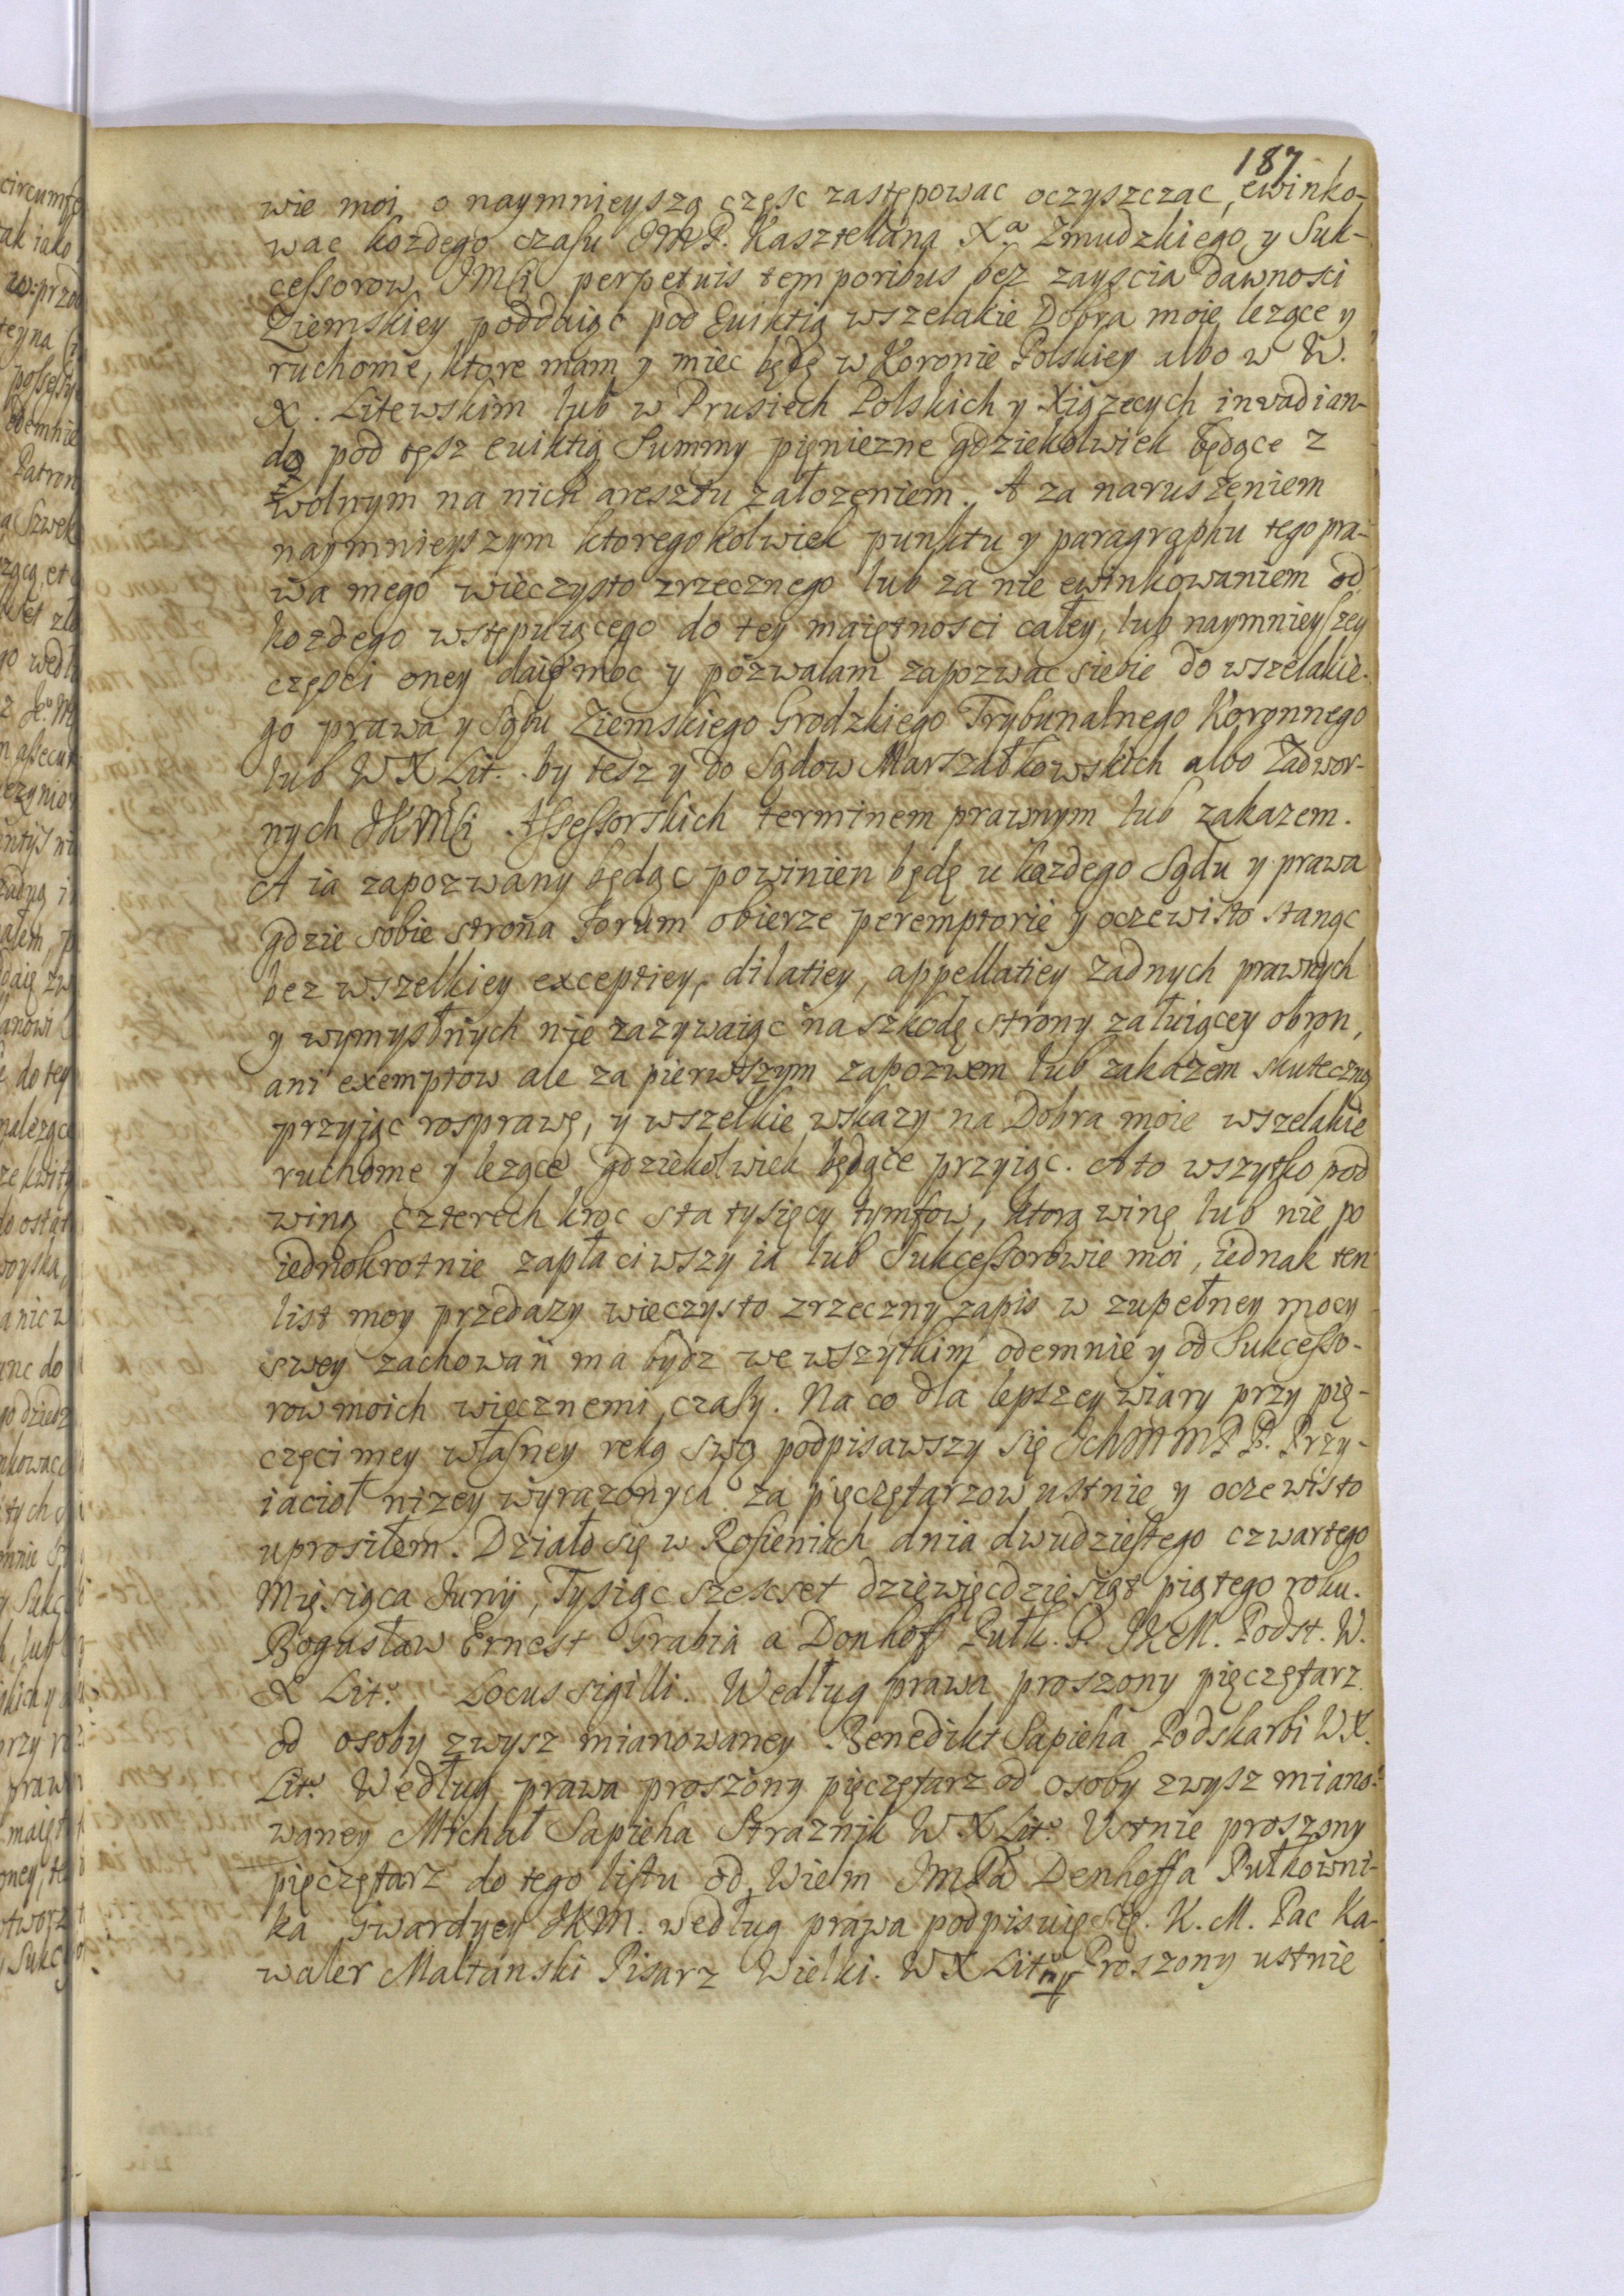 187
wie moi o naymnieyszą częsc zastępowac oczyszczac, ewinko-
wac kozdego czasu IMP. Kasztelana Xa Zmudzkiego y Suk-
cessorow IMści perpetuis temporibus bez zayscia dawnosci
Ziemskiey poddaiąc pod Euiktią wszelakie Dobra moie lezące y
ruchome, ktore mam y miec będę w Koronie Polskiey albo w W.
X. Litewskim lub w Prusiech Polskich y Xiązecych invadian-
do pod tęsz euiktią Summy pieniezne gdziekolwiek będące z
wolnym na nich aresztu załozeniem. A za naruszeniem
naymnieyszym ktoregokolwiek punktu y paragraphu tego pra-
wa mego wieczysto zrzecznego lub za nie ewinkowaniem od
kozdego wstępuiącego do tey maiętnosci całey, lub naymnieyszey
częsci oney daię moc y pozwalam zapozwac siebie do wszelakie-
go prawa y Sądu Ziemskiego Grodzkiego Trybunalnego Koronnego
lub W X Lit. by tesz y do Sądow Marszałkowskich albo Zadwor-
nych JKMści Assessorskich terminem prawnym lub zakazem.
A ia zapozwany będąc powinien będę u kazdego Sądu y prawa
gdzie sobie strona Forum obierze peremptorie y oczewisto stanąc
bez wszelkiey exceptiey, dilatiey, appellatiey zadnych prawnych
y wymyslnych nie zazywaiąc na szkodę strony załuiącey obron,
ani exemptow ale za pierwszym zapozwem lub zakazem skuteczną
przyiąc rosprawę, y wszelkie wskazy na Dobra moie wszelakie
ruchome y lezące gdziekolwiek będące przyiąc. A to wszytko pod
winą czterech kroc sta tysięcy tymfow, ktorą winę lub nie po
iednokrotnie zapłaciwszy ia lub Sukcessorowie moi, iednak ten
list moy przedazy wieczysto zrzeczny zapis w zupełney mocy
swey zachowan ma bydz we wszytkim odemnie y od Sukcesso-
row moich wiecznemi czasy. Na co dla lepszey wiary przy pię-
częci mey własney ręką swą podpisawszy się Ich MM P P. Przy-
iacioł nizey wyrazonych za pięczętarzow ustnie y oczewisto
uprosiłem. Działo się w Rosieniach dnia dwudziestego czwartego
Miesiąca Junij, Tysiąc szescset dziewięcdziesiąt piątego roku.
Bogusław Ernest Grabia a Donhoff Pułk. G. JKM. Podst. W.
X Lito Locus sigilli. Według prawa proszony pięczętarz
od osoby zwysz mianowaney Benedikt Sapieha Podskarbi WX.
Lito Według prawa proszony pięczętarz od osoby zwysz miano-
waney Michał Sapieha Straznik W X Lito Ustnie proszony
pięczętarz do tego listu od Wielm JmPa Denhoffa Pułkowni-
ka Gwardyey JKM. według prawa podpisuię się. K. M. Pac Ka-
waler Maltanski Pisarz Wielki. W X Lito mp Proszony ustnie